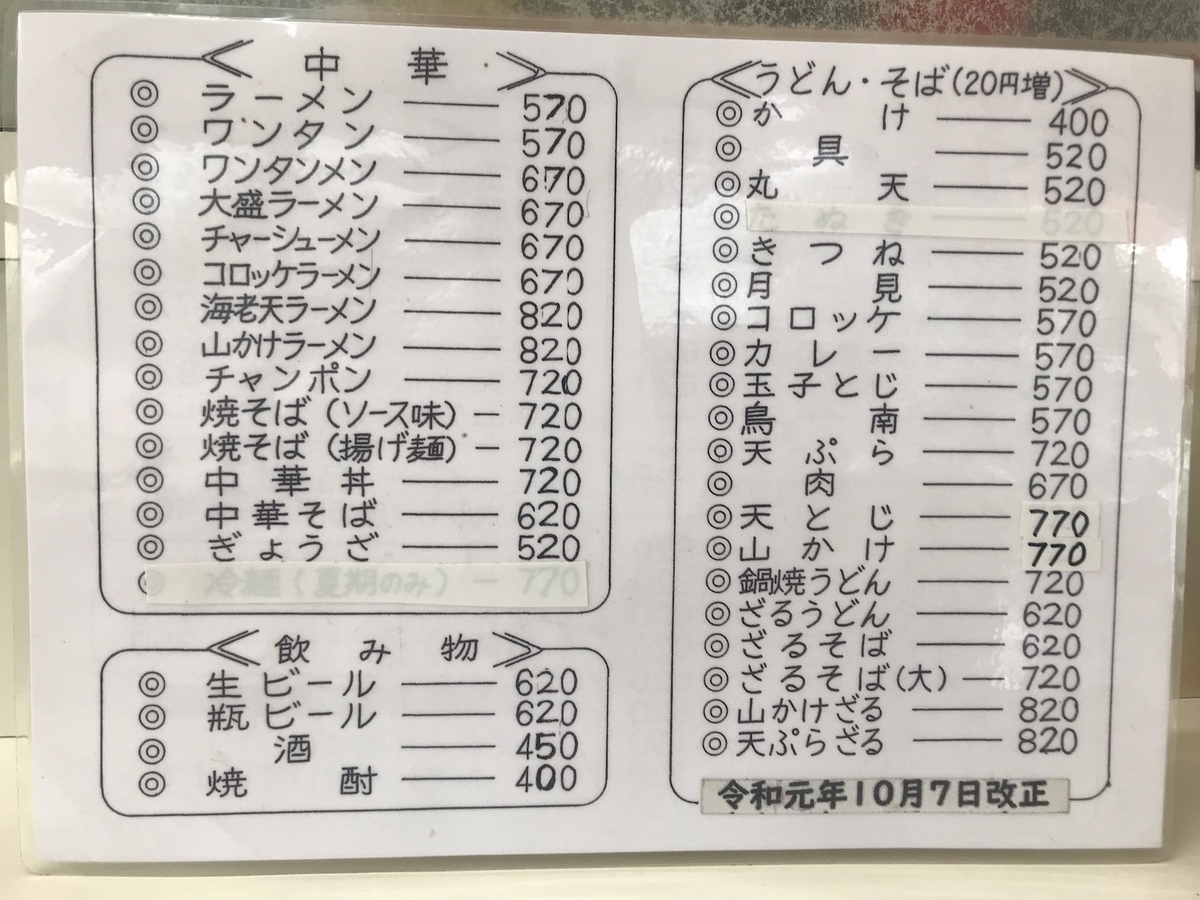 中華
◎ ラーメン ── 570
◎ ワンタン ── 570
◎ ワンタンメン ── 670
◎ 大盛ラーメン ── 670
◎ チャーシューメン ── 670
◎ コロッケラーメン ── 670
◎ 海老天ラーメン ── 820
◎ 山かけラーメン ── 820
◎ チャンポン ── 720
◎ 焼そば(ソース味) ─ 720
◎ 焼そば(揚げ麺) ─ 720
◎ 中華丼 ── 720
◎ 中華そば ── 620
◎ ぎょうざ ── 520
◎ 冷麺(夏期のみ) ─ 770
飲み物
◎ 生ビール ── 620
◎ 瓶ビール ── 620
◎ 酒 ── 450
◎ 焼酎 ── 400
うどん・そば(20円増)
◎ かけ ── 400
◎ 具 ── 520
◎ 丸天 ── 520
◎ たぬき ── 520
◎ きつね ── 520
◎ 月見 ── 520
◎ コロッケ ── 570
◎ カレー ── 570
◎ 玉子とじ ── 570
◎ 鳥南 ── 570
◎ 天ぷら ── 720
◎ 肉 ── 670
◎ 天とじ ── 770
◎ 山かけ ── 770
◎ 鍋焼うどん ── 720
◎ ざるうどん ── 620
◎ ざるそば ── 620
◎ ざるそば(大) ─ 720
◎ 山かけざる ── 820
◎ 天ぷらざる ── 820
令和元年10月7日改正